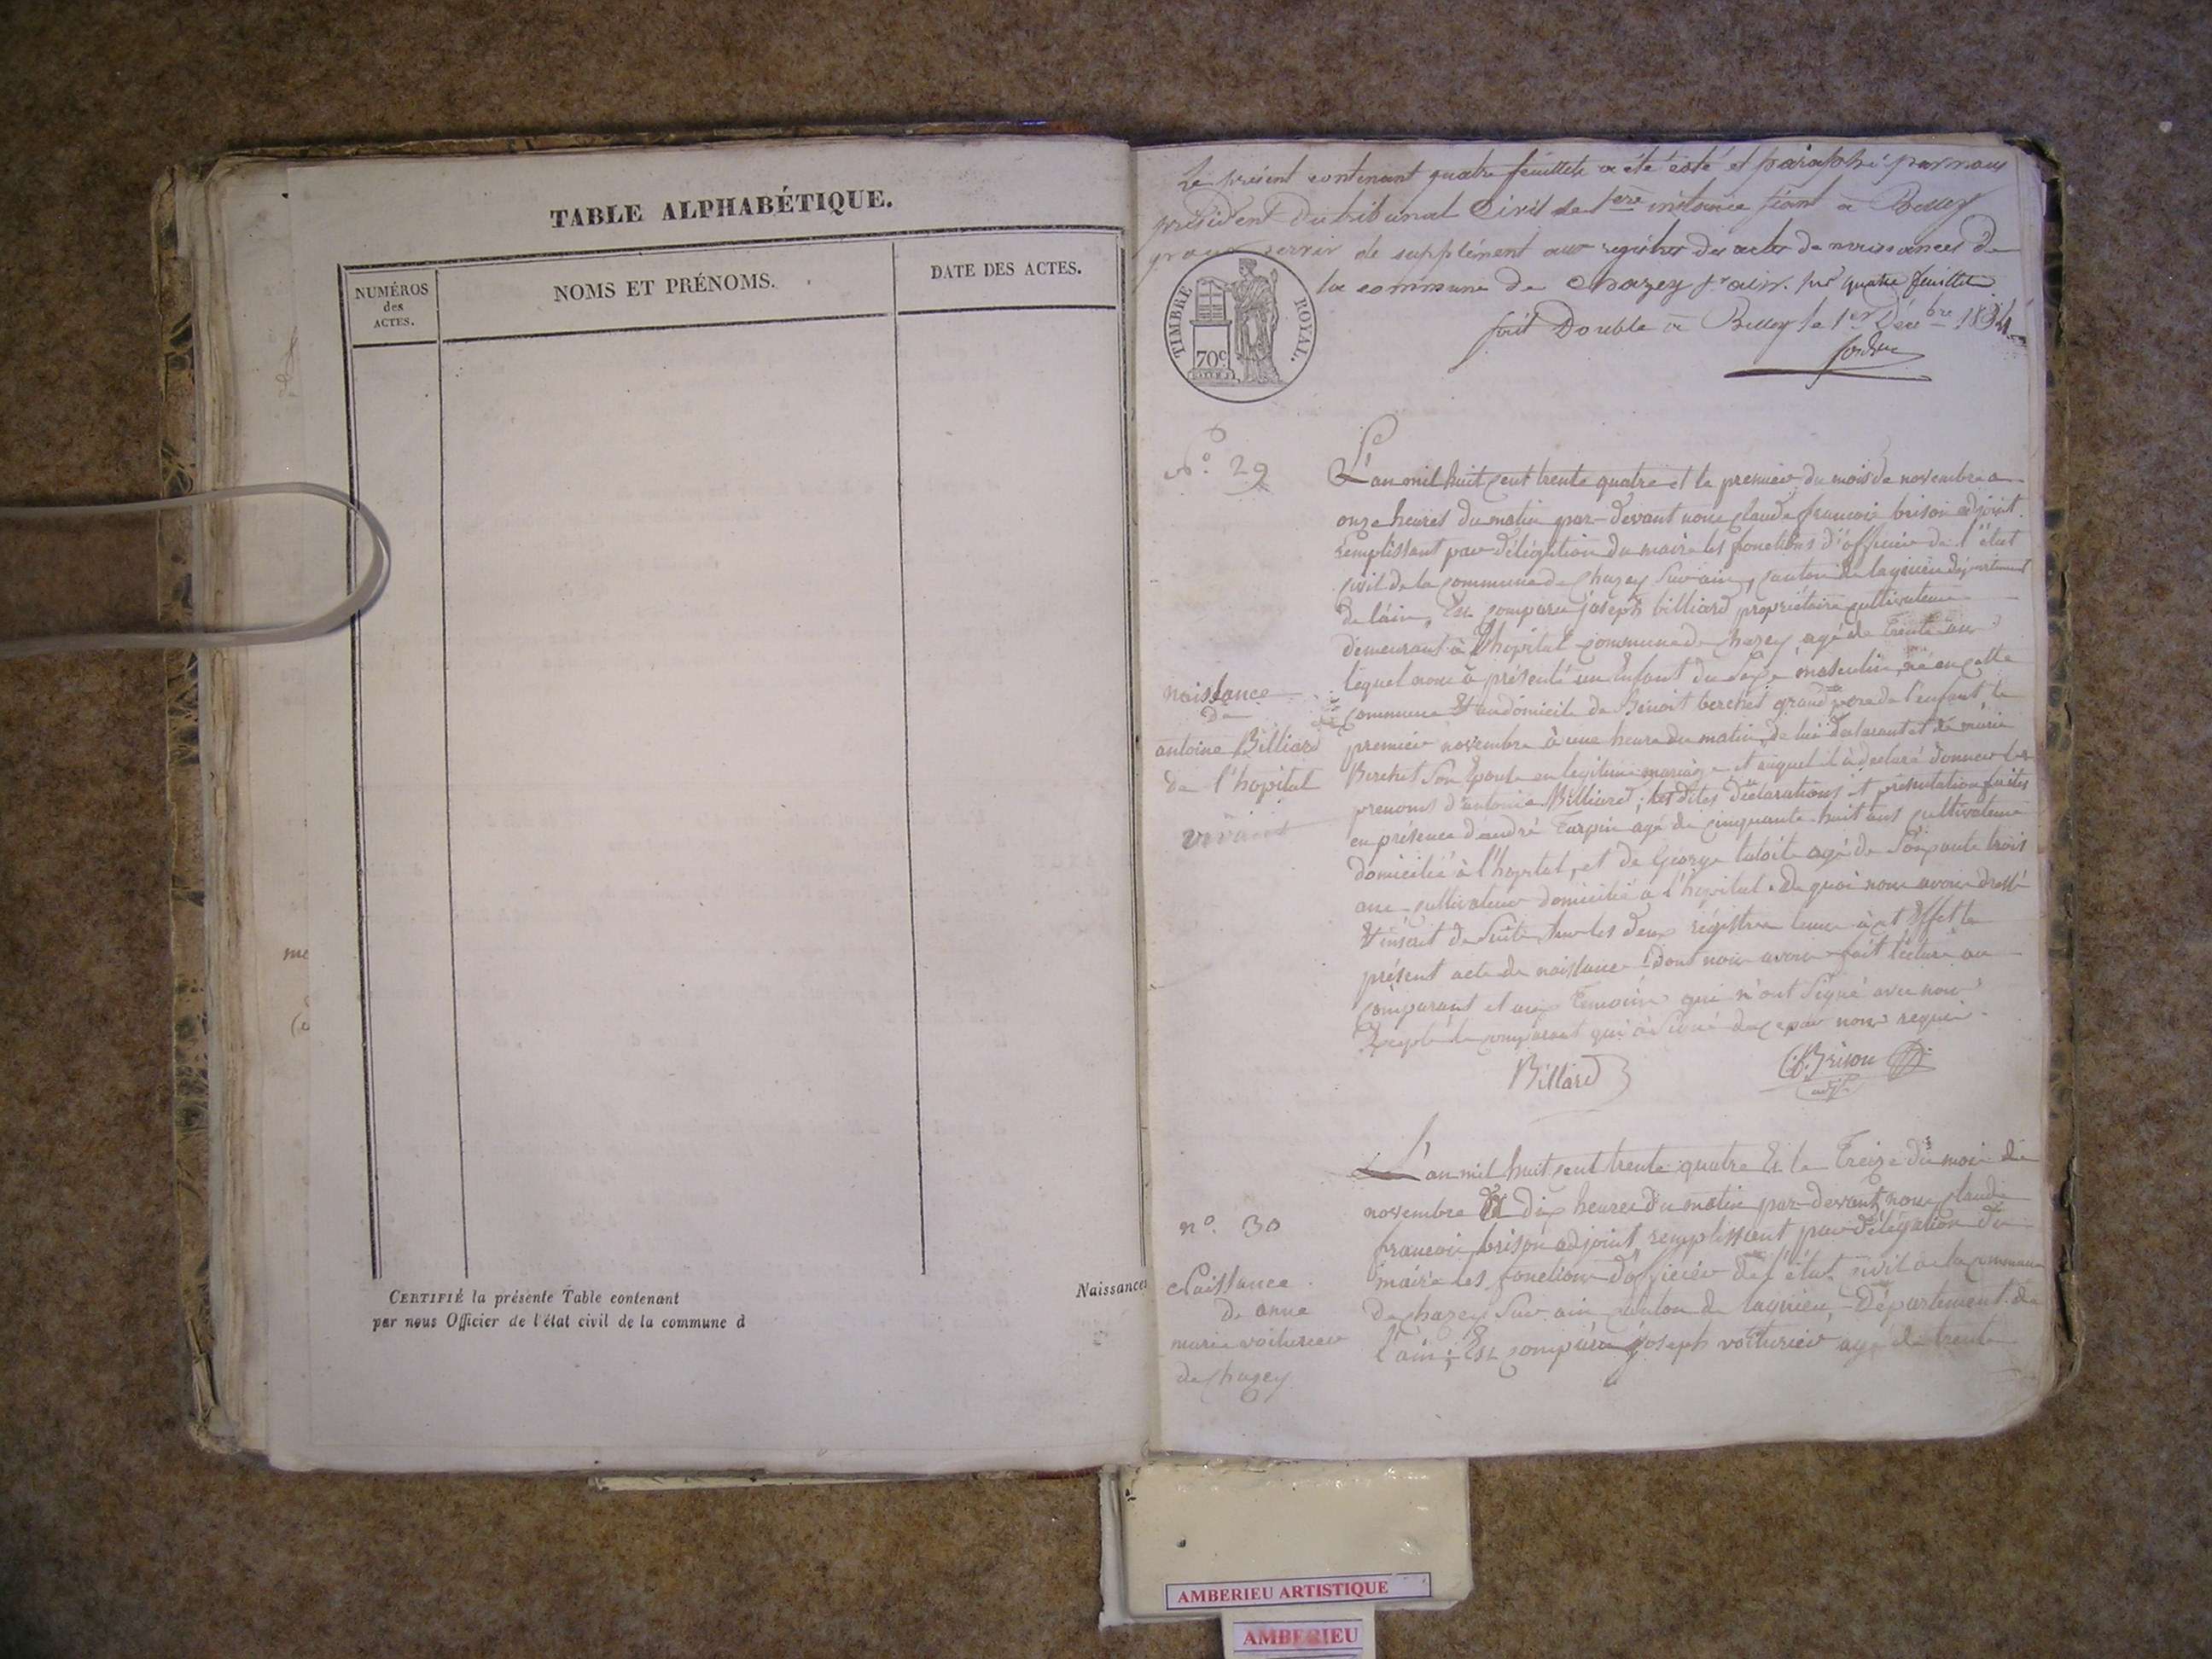 TABLE ALPHABÉTIQUE.
NUMÉROS
des
ACTES.
NOMS ET PRÉNOMS.
DATE DES ACTES.
CERTIFIÉ la présente Table contenant
par nous Officier de l'état civil de la commune d
Naissances
Le présent contenant quatre feuillets a été coté et paraphé par nous
président du tribunal Civil de 1ere instance séant à Belley
pour servir de supplément aux registres des actes de naissances de
la commune de Chazey sr ain. sur quatre feuillets
fait Double à Belley le 1er Decbre 1834
TIMBRE ROYAL.
70c
N° 29
naissance
de
antoine Billiard
de l'hopital
vivant
L'an mil huit cent trente quatre et le premier du mois de novembre a
onze heures du matin par-devant nous claude francois brison adjoint
remplissant par délégation du maire les fonctions d'officier de l'état
civil de la commune de Chazey Sur ain, canton de lagnieu département
de l'ain, Est comparu joseph billiard propriétaire cultivateur
demeurant à l'hopital commune de chazey agé de trente ans
lequel nous à présenté un Enfant du Sexe masculin né en cette
commune Et au domicile de Benoit berchet grand pere de l'enfant le
premier novembre à une heure du matin, de lui déclarant et de marie
Berchet Son Epouse en legitime mariage et auquel il à declaré donner les
prenoms d'antoine Billiard; les dites déclarations et présentation faites
en présence d'andré Turpin agé de cinquante huit ans cultivateur
domicilié à l'hopital, et de George agé de Soixante trois
ans cultivateur domicilié à l'hopital. De quoi nous avons dressé
Et inscrit de Suite Sur les deux régistres tenus à cet Effet le
présent acte de naissance dont nous avons fait lecture au
comparant et aux temoins qui n'ont Signé avec nous
Excepté le comparant qui à Signé de ce par nous requis.
Billard
C.f. Brison
adjt
n° 30
Naissance
de anne
marie voiturier
de Chazey
L'an mil huit cent trente quatre Et le Treize du mois de
novembre à dix heures du matin par-devant nous claude
francois brison adjoint remplissant par délégation du
maire les fonctions d'officier de l'état civil de la commune
de chazey Sur ain canton de lagnieu, Département de
l'ain; Est comparu joseph voiturier agé de trente
AMBERIEU ARTISTIQUE
AMBERIEU